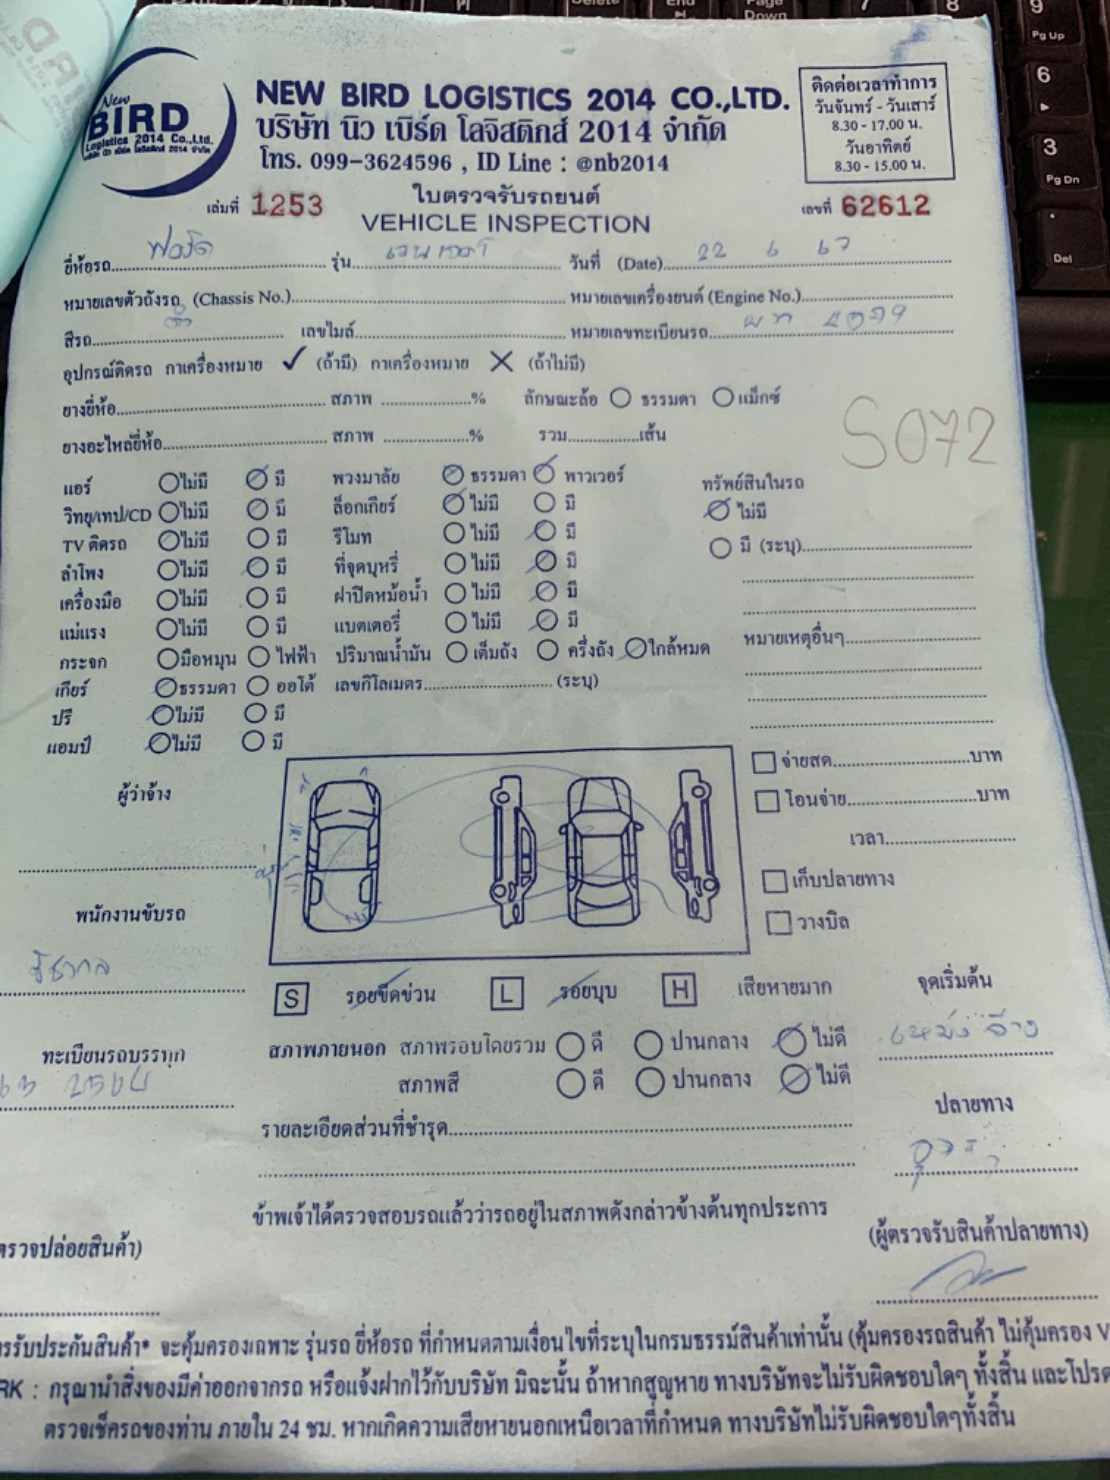 New
BIRD
Logistics 2014 Co.,Ltd.
บริษัท นิว เบิร์ด โลจิสติกส์ 2014 จำกัด
NEW BIRD LOGISTICS 2014 CO.,LTD.
บริษัท นิว เบิร์ด โลจิสติกส์ 2014 จำกัด
โทร. 099-3624596 , ID Line : @nb2014
ติดต่อเวลาทำการ
วันจันทร์ - วันเสาร์
8.30 - 17.00 น.
วันอาทิตย์
8.30 - 15.00 น.
ใบตรวจรับรถยนต์
เล่มที่ 1253 VEHICLE INSPECTION เลขที่ 62612
ยี่ห้อรถ ฟอร์ด รุ่น วันที่ (Date) 22 6 67
หมายเลขตัวถังรถ (Chassis No.) หมายเลขเครื่องยนต์ (Engine No.)
สีรถ เลขไมล์ หมายเลขทะเบียนรถ
อุปกรณ์ติดรถ กาเครื่องหมาย ✓ (ถ้ามี) กาเครื่องหมาย ✕ (ถ้าไม่มี)
ยางยี่ห้อ สภาพ % ลักษณะล้อ ธรรมดา แม็กซ์
ยางอะไหล่ยี่ห้อ สภาพ % รวม เส้น
S072
แอร์ ไม่มี มี พวงมาลัย ธรรมดา พาวเวอร์ ทรัพย์สินในรถ
วิทยุ/เทป/CD ไม่มี มี ล็อกเกียร์ ไม่มี มี ไม่มี
TV ติดรถ ไม่มี มี รีโมท ไม่มี มี มี (ระบุ)
ลำโพง ไม่มี มี ที่จุดบุหรี่ ไม่มี มี
เครื่องมือ ไม่มี มี ฝาปิดหม้อน้ำ ไม่มี มี
แม่แรง ไม่มี มี แบตเตอรี่ ไม่มี มี หมายเหตุอื่นๆ
กระจก มือหมุน ไฟฟ้า ปริมาณน้ำมัน เต็มถัง ครึ่งถัง ใกล้หมด
เกียร์ ธรรมดา ออโต้ เลขกิโลเมตร (ระบุ)
ปรี ไม่มี มี
แอมป์ ไม่มี มี
ผู้ว่าจ้าง
จ่ายสด บาท
โอนจ่าย บาท
เวลา
เก็บปลายทาง
วางบิล
พนักงานขับรถ
S รอยขีดข่วน L รอยบุบ H เสียหายมาก จุดเริ่มต้น
ทะเบียนรถบรรทุก สภาพภายนอก สภาพรอบโดยรวม ดี ปานกลาง ไม่ดี
สภาพสี ดี ปานกลาง ไม่ดี
ปลายทาง
รายละเอียดส่วนที่ชำรุด
ข้าพเจ้าได้ตรวจสอบรถแล้วว่ารถอยู่ในสภาพดังกล่าวข้างต้นทุกประการ
ตรวจปล่อยสินค้า) (ผู้ตรวจรับสินค้าปลายทาง)
ารรับประกันสินค้า* จะคุ้มครองเฉพาะ รุ่นรถ ยี่ห้อรถ ที่กำหนดตามเงื่อนไขที่ระบุในกรมธรรม์สินค้าเท่านั้น (คุ้มครองรถสินค้า ไม่คุ้มครอง V
RK : กรุณานำสิ่งของมีค่าออกจากรถ หรือแจ้งฝากไว้กับบริษัท มิฉะนั้น ถ้าหากสูญหาย ทางบริษัทจะไม่รับผิดชอบใดๆ ทั้งสิ้น และโปรด
ตรวจเช็ครถของท่าน ภายใน 24 ชม. หากเกิดความเสียหายนอกเหนือเวลาที่กำหนด ทางบริษัทไม่รับผิดชอบใดๆทั้งสิ้น